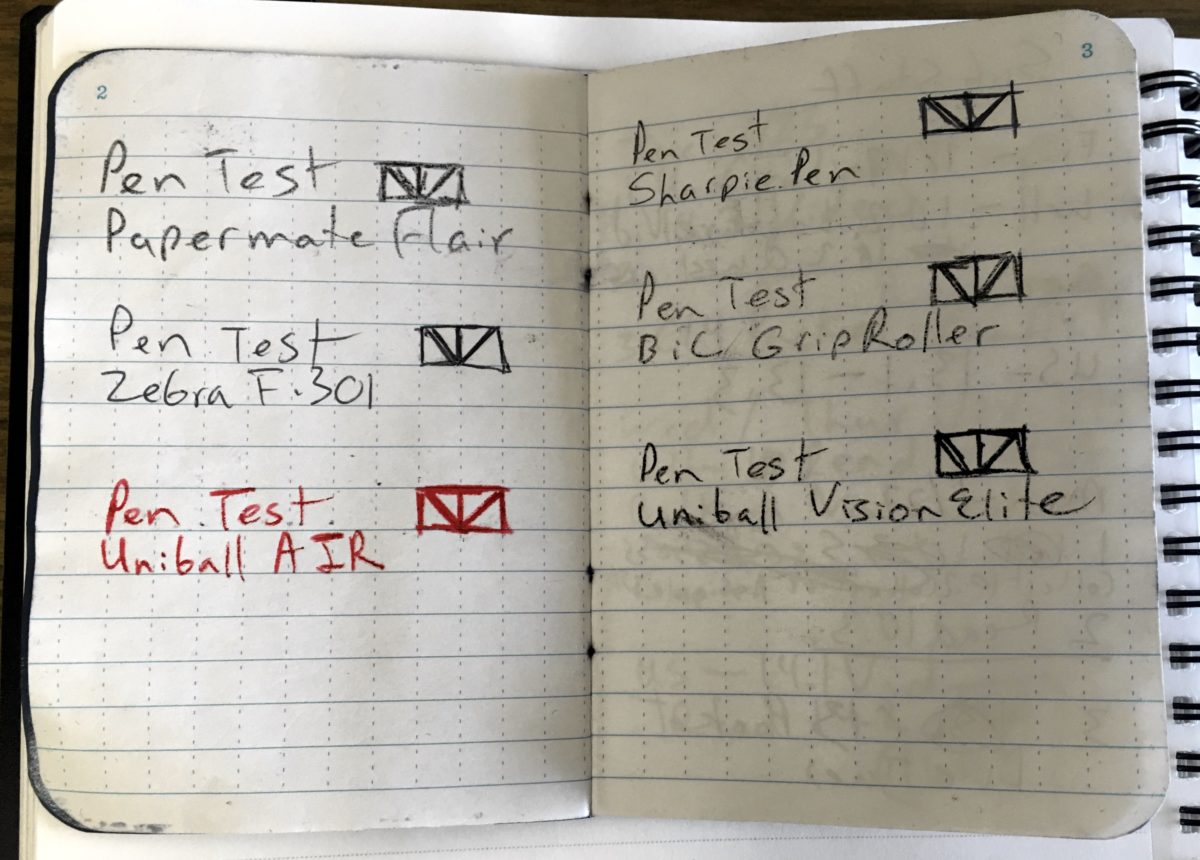 2
Pen Test
Papermate Flair
Pen Test
Zebra F-301
Pen Test
Uniball AIR
3
Pen Test
Sharpie Pen
Pen Test
BiC GripRoller
Pen Test
Uniball Vision Elite